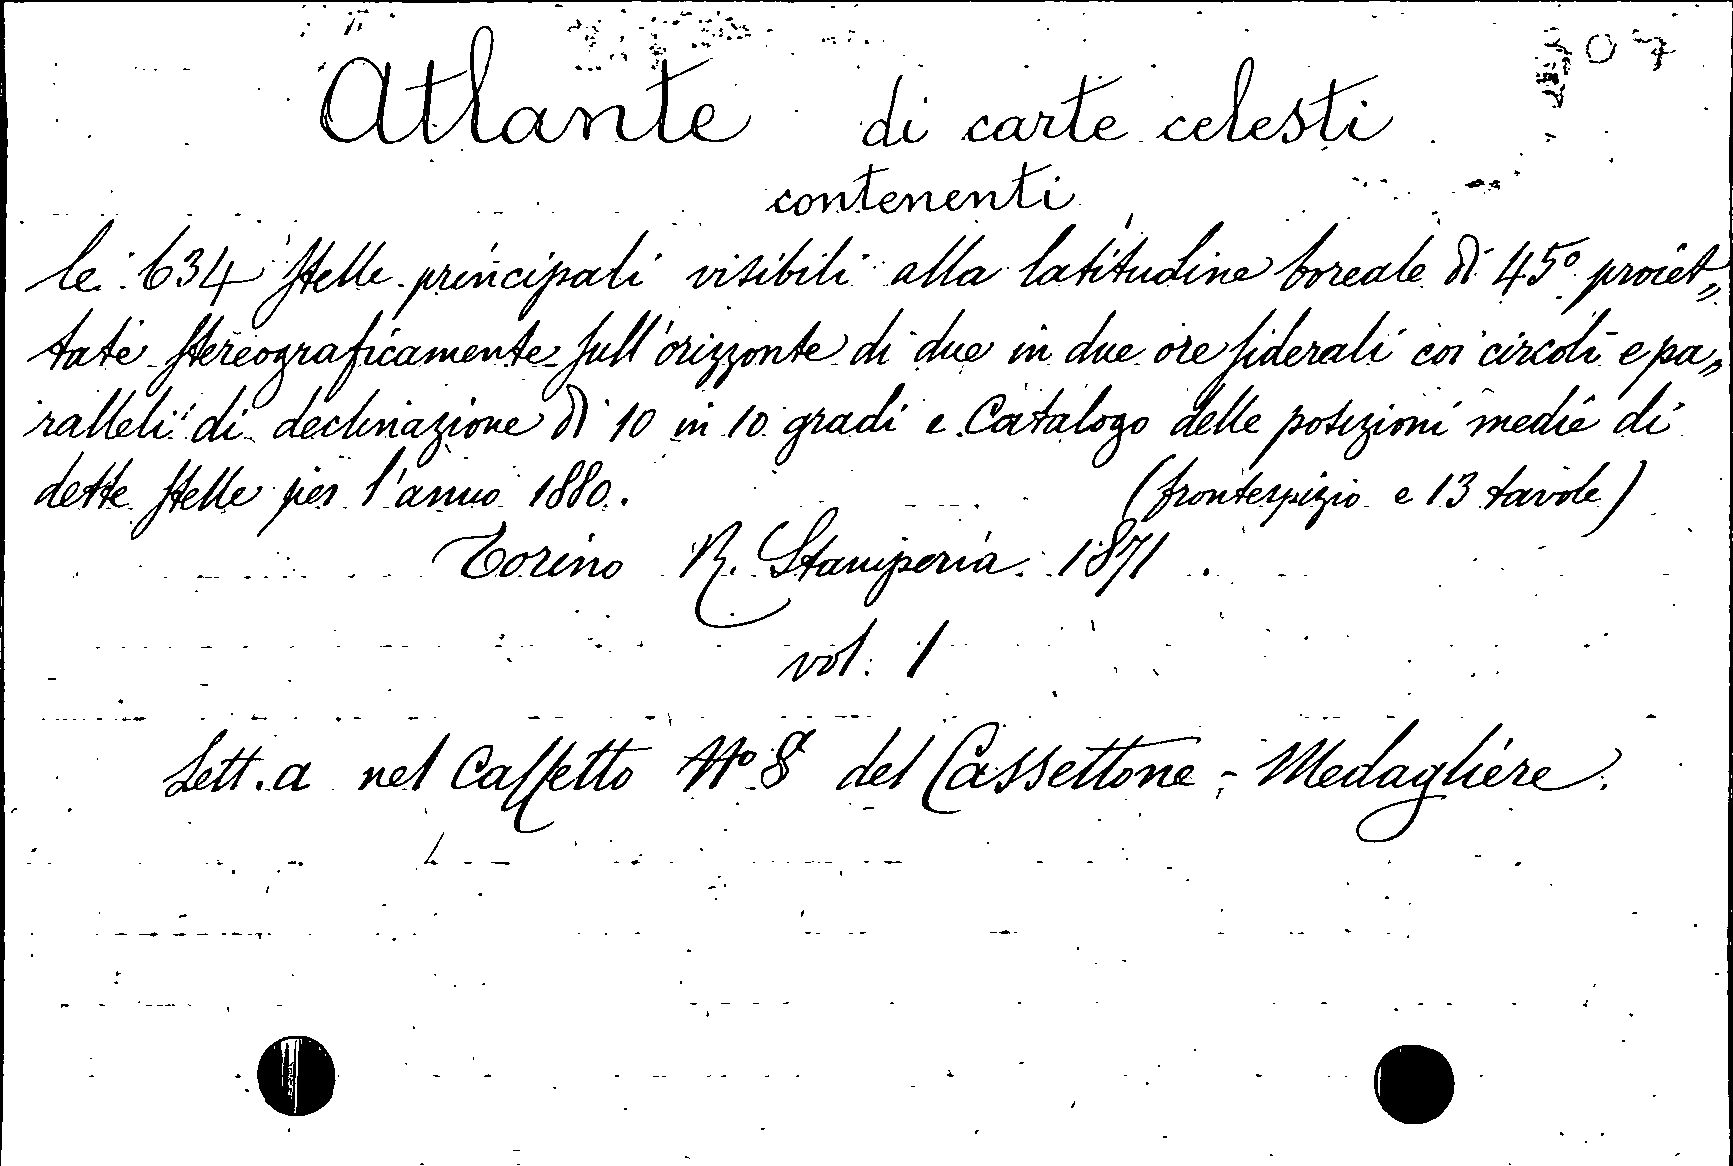 Atlante di carte celesti
contenenti
le 634 stelle principali visibili alla latitudine boreale di 45° proiet„
tate stereograficamente sull'orizzonte di due in due ore siderali coi circoli e pa„
ralleli di declinazione di 10 in 10 gradi e Catalogo delle posizioni medie di
dette stelle per l'anno 1880. (frontespizio e 13 tavole)
Torino R. Stamperia 1871
vol. 1
Lett. a nel Cassetto No 8 del Cassettone - Medagliere.